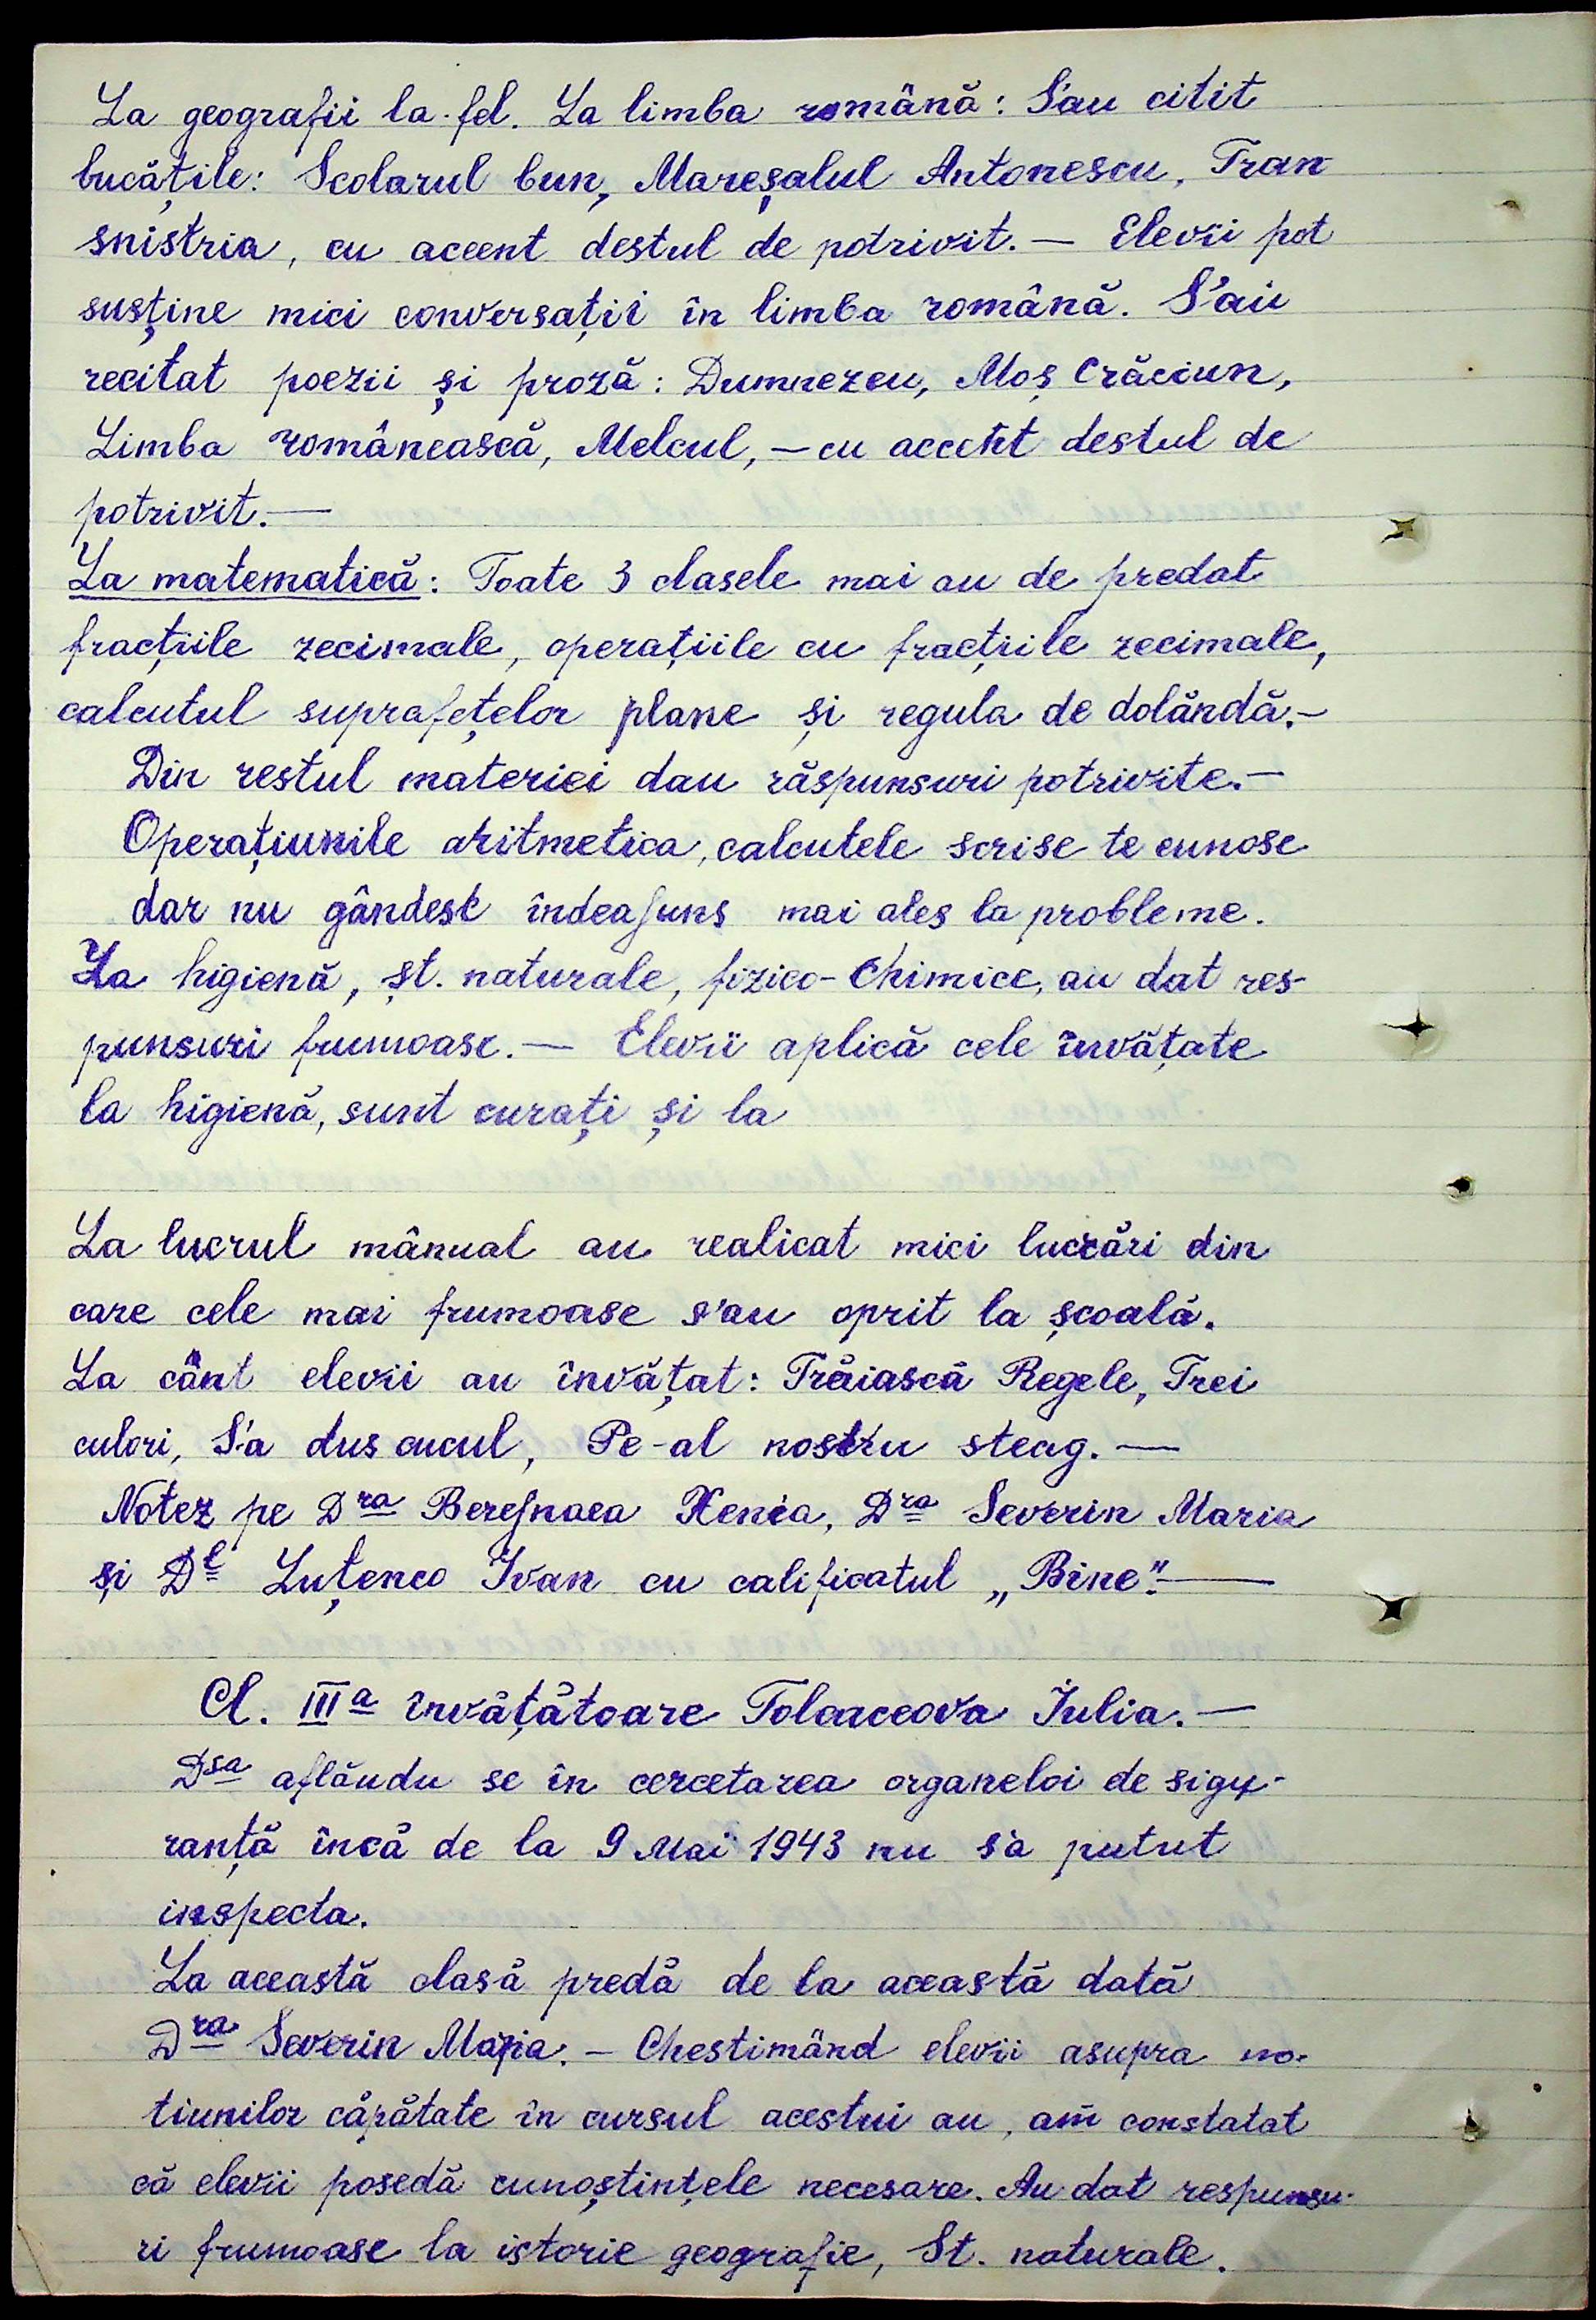 La geografii la fel. La limba română: S'au citit
bucățile: Scolarul bun, Mareșalul Antonescu, Tran
snistria, cu accent destul de potrivit. — Elevii pot
susține mici conversații în limba română. S'au
recitat poezii și proză: Dumnezeu, Moș Crăciun,
Limba românească, Melcul, — cu accent destul de
potrivit. —
La matematică: Toate 3 clasele mai au de predat
fracțiile zecimale, operațiile cu fracțiile zecimale,
calcutul suprafețelor plane și regula de dolăndă. —
Din restul materiei dau răspunsuri potrivite. —
Operațiunile aritmetica, calcutele scrise te cunosc
dar nu gândesc îndeajuns mai ales la probleme.
La higienă, șt. naturale, fizico-Chimice, au dat res-
punsuri frumoase. — Elevii aplică cele învățate
la higienă, sunt curați și la
La lucrul mânual au realicat mici lucrări din
care cele mai frumoase s'au oprit la școală.
La cânt elevii au învățat: Trăiască Regele, Trei
culori, S'a dus cucul, Pe-al nostru steag. —
Notez pe Dra Berejnaea Xenia, Dra Severin Maria
și Dl Luțenco Ivan cu calificatul „Bine". —
Cl. IIIa învățătoare Tolcaceova Iulia. —
Dsa aflăndu se în cercetarea organeloi de sigu-
ranță încă de la 9 Mai 1943 nu s'a putut
inspecta.
La această clasă predă de la această dată
Dra Severin Maria. — Chestimänd elevii asupra no-
tiunilor căpătate în cursul acestui an, am constatat
că elevii posedă cunoștințele necesare. Au dat respunsu-
ri frumoase la istorie geografie, St. naturale.